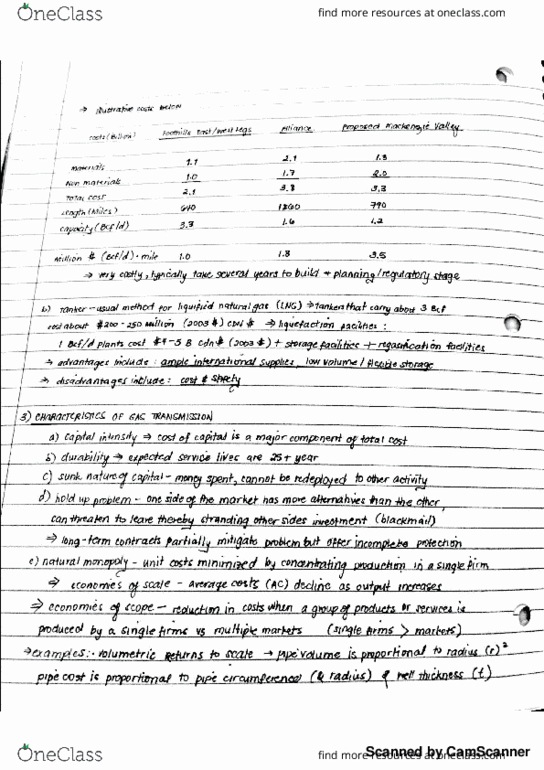 OneClass find more resources at oneclass.com
→ illustrative costs below
costs (Billion) Foothills East/West Legs Alliance Proposed Mackenzie Valley
Materials 1.1 2.1 1.3
Non materials 1.0 1.7 2.0
TOTAL COST 2.1 3.8 3.3
Length (Miles) 640 790
capacity (Bcf/d) 3.3 1.6 1.2
Million $ (Bcf/d) · mile 1.0 1.8 3.5
→ very costly, typically take several years to build + planning/regulatory stage
b) Tanker - usual method for liquified natural gas (LNG) → tankers that carry about 3 Bcf
cost about $200-250 Million (2003 $) CDN $ → liquefaction facilities:
1 Bcf/d plants cost $4-5 B Cdn $ (2003 $) + storage facilities + regasification facilities
→ advantages include: ample international supplies, low volume / flexible storage
→ disadvantages include: cost & safety
3) CHARACTERISTICS OF GAS TRANSMISSION
a) capital intensity → cost of capital is a major component of total cost
b) durability → expected service lives are 25+ year
c) sunk nature of capital - money spent, cannot be redeployed to other activity
d) hold up problem - one side of the market has more alternatives than the other,
can threaten to leave thereby stranding other sides investment (blackmail)
→ long-term contracts partially mitigate problem but offer incomplete protection
e) natural monopoly - unit costs minimized by concentrating production in a single firm
⇒ economies of scale - average costs (AC) decline as output increases
⇒ economies of scope - reduction in costs when a group of products or services is
produced by a single firms vs multiple markets (single firms > markets)
→ examples: · volumetric returns to scale → pipe volume is proportional to radius (r)²
pipe cost is proportional to pipe circumference (& radius) & well thickness (t)
OneClass find more resources at oneclass.com
Scanned by CamScanner